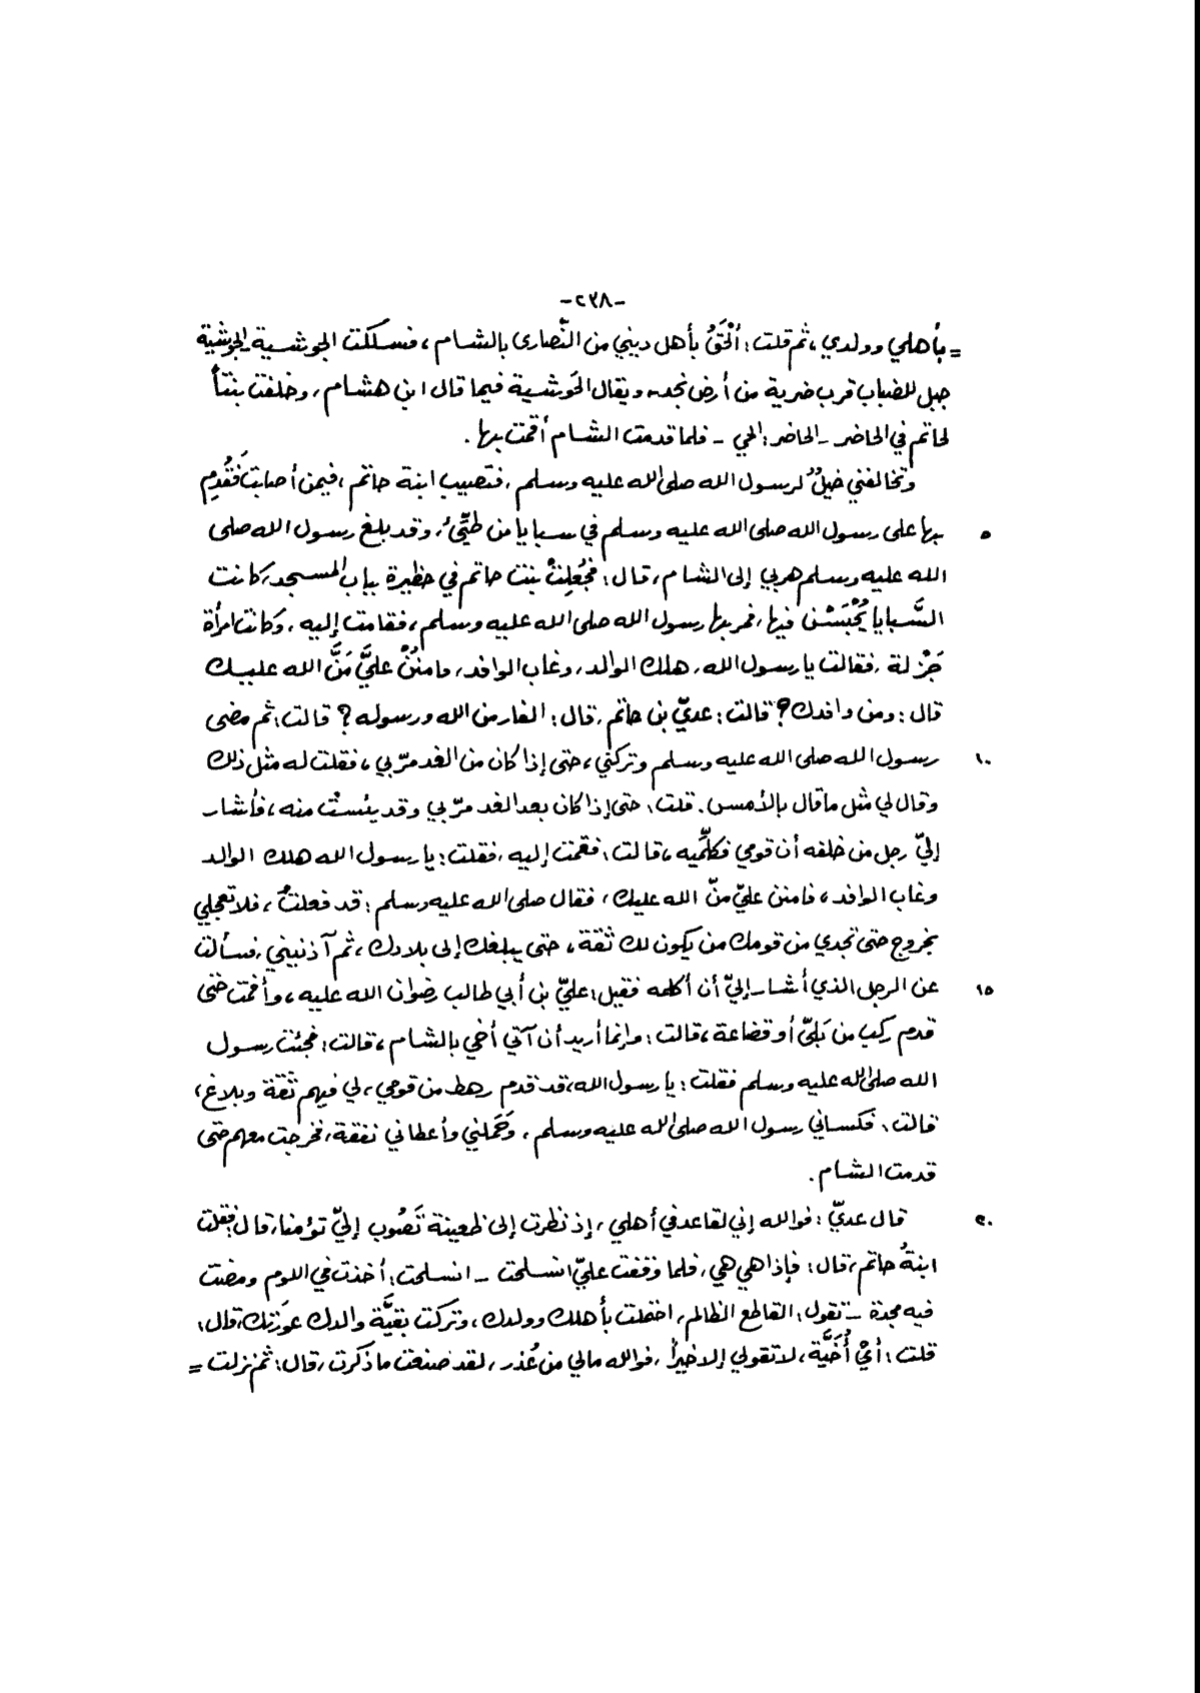 -٢٣٨-
= بأهلي وولدي، ثم قلت: أَلْحَقُ بأهل ديني من النّصارى بالشام، فسلكت الجوشية - الجوشية
جبل للضباب قرب ضرية من أرض نجد، ويقال الحَوشية فيما قال ابن هشام، وخلفت بنتاً
لحاتم في الحاضر - الحاضر: الحي - فلما قدمت الشام أقمت بها.
وتخالفني خيلٌ لرسول الله صلى الله عليه وسلم، فتصيب ابنة حاتم، فيمن أصابت، فَقُدِم
٥ بها على رسول الله صلى الله عليه وسلم في سبايا من طيّئ، وقد بلغ رسول الله صلى
الله عليه وسلم هربي إلى الشام، قال: فجُعِلتْ بنت حاتم في حظيرة بباب المسجد، كانت
السَّبايا يُحْبَسْنَ فيها، فمر بها رسول الله صلى الله عليه وسلم، فقامت إليه، وكانت امرأة
جَزْلة، فقالت يا رسول الله، هلك الوالد، وغاب الوافد، فامنُنْ عليَّ مَنَّ الله عليك
قال: ومن وافدك؟ قالت: عديّ بن حاتم، قال: الفار من الله ورسوله؟ قالت: ثم مضى
١٠ رسول الله صلى الله عليه وسلم وتركني، حتى إذا كان من الغد مرّ بي، فقلت له مثل ذلك
وقال لي مثل ما قال بالأمس. قلت: حتى إذا كان بعد الغد مرّ بي وقد يئستْ منه، فأشار
إليّ رجل من خلفه أن قومي فكلِّميه، قالت: فقمت إليه، فقلت: يا رسول الله هلك الوالد
وغاب الوافد، فامنن عليّ منّ الله عليك، فقال صلى الله عليه وسلم: قد فعلتُ، فلا تعجلي
بخروج حتى تجدي من قومك من يكون لك ثقة، حتى يبلغك إلى بلادك، ثم آذنيني، فسألت
١٥ عن الرجل الذي أشار إليّ أن أكلمه فقيل: عليّ بن أبي طالب رضوان الله عليه، وأقمت حتى
قدم ركب من بَليّ أو قضاعة، قالت: وإنما أريد أن آتي أخي بالشام، قالت: فجئت رسول
الله صلى الله عليه وسلم فقلت: يا رسول الله، قد قدم رهط من قومي، لي فيهم ثقة وبلاغ،
قالت: فكساني رسول الله صلى الله عليه وسلم، وحَمَلني وأعطاني نفقة، فخرجت معهم حتى
قدمت الشام.
٢٠ قال عديّ: فوالله إني لقاعد في أهلي، إذ نظرت إلى ظعينة تَصُوب إليّ تؤمنا، قال: فقلت
ابنةُ حاتم، قال: فإذا هي هي، فلما وقفت عليّ انسلحت - انسلحت: أخذت في اللوم ومضت
فيه مجدة - تقول: القاطع الظالم، احتملت بأهلك وولدك، وتركت بقيَّة والدك عوَرتك، قال:
قلت: أيْ أُخَيَّة، لا تقولي إلا خيراً، فوالله مالي من عُذر، لقد صنعت ما ذكرت، قال: ثم نزلت =